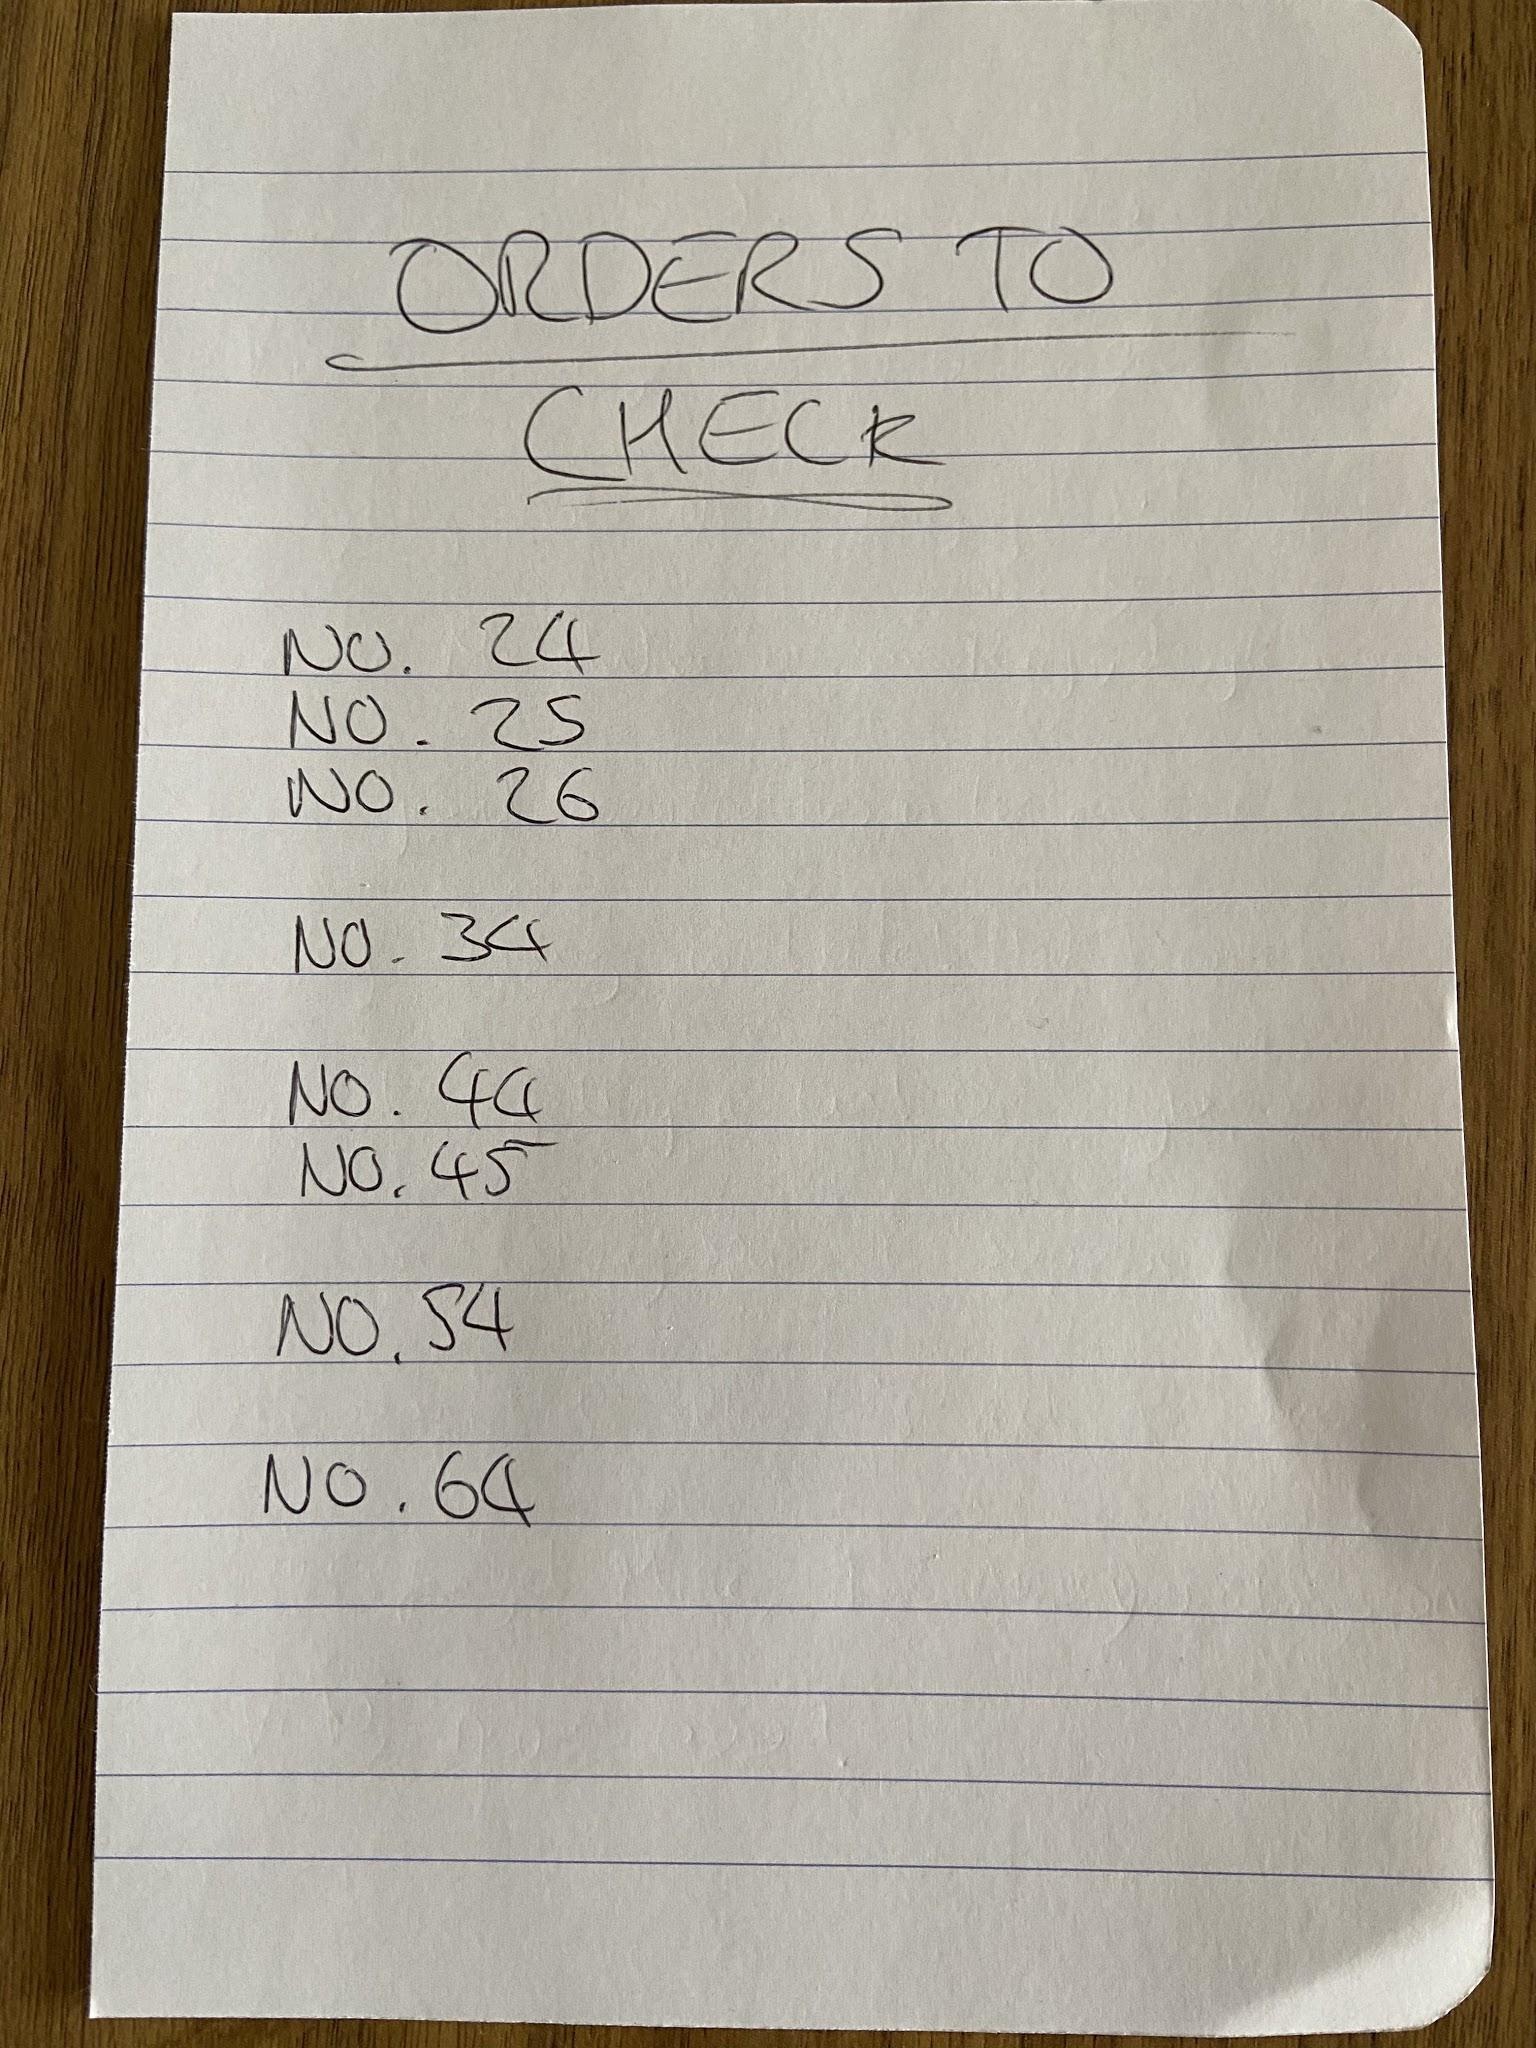 ORDERS TO
CHECK
NO. 24
NO. 25
NO. 26
NO. 34
NO. 44
NO. 45
NO. 54
NO. 64